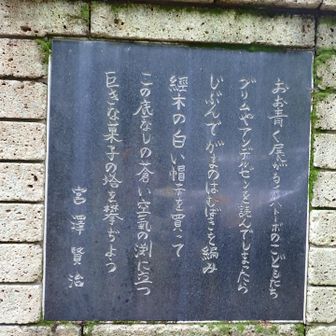 おお青く展がるイーハトーボのこどもたち
グリムやアンデルセンを読んでしまったら
じぶんでがまのはむばきを編み
經木の白い帽子を買って
この底なしの蒼い空氣の渕に立つ
巨きな菓子の塔を攀ぢよう
宮澤賢治